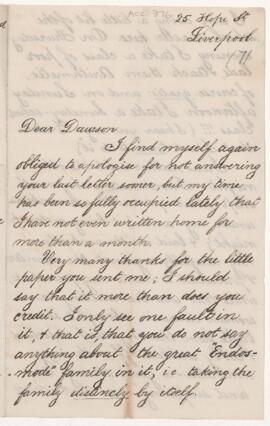 ACC. 376
25 Hope St
Liverpool
Dear Dawson
I find myself again
obliged to apologise for not answering
your last letter sooner but my time
has been so fully occupied lately that
I have not even written home for
more than a month.
Very many thanks for the little
paper you sent me; I should
say that it more than does you
credit. I only see one fault in
it, & that is, that you do not say
anything about the great "Endos-
mode" family in it, i.e. taking the
family distinctly by itself.